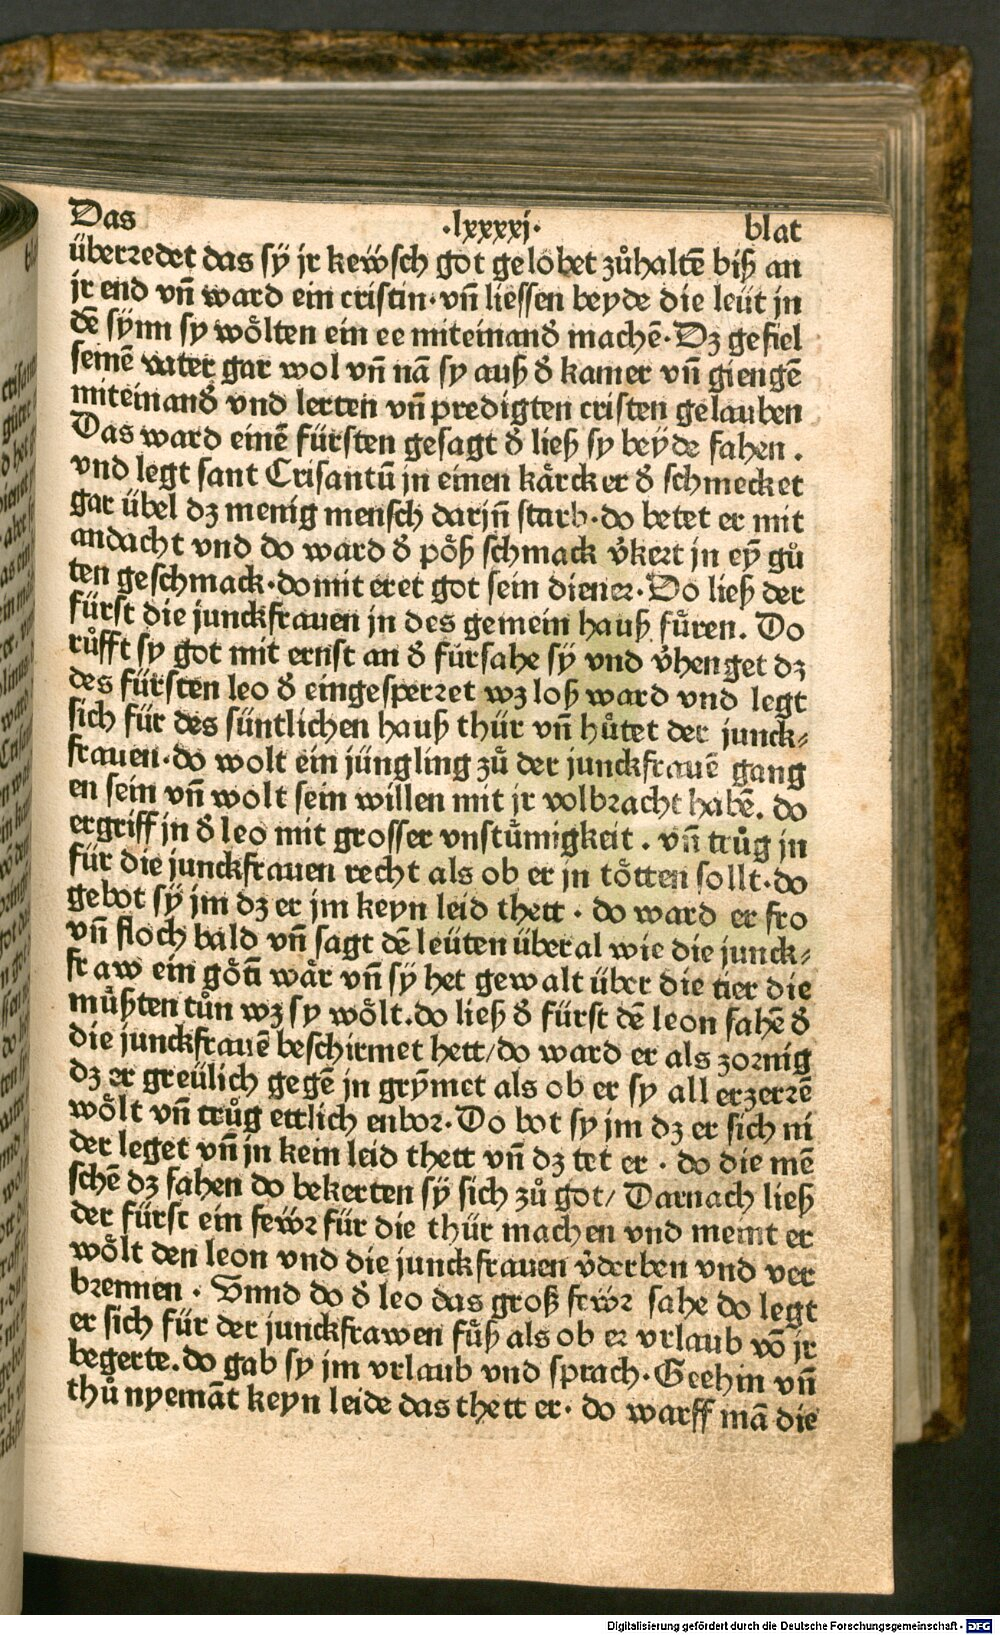 Das ·lxxxxj· blat
überredet das sÿ jr keẅsch got gelobet zůhaltē biß an
jr end vn̄ ward ein cristin· vn̄ liessen beyde die leüt jn
dē sÿnn sy woͤlten ein ee miteinand̾ machē· Dz gefiel
seinē vater gar wol vn̄ nā sy auß d̾ kamer vn̄ giengē
miteinand̾ vnd lerten vn̄ predigten cristen gelauben
Das ward einē fürsten gesagt d̾ ließ sy beÿde fahen .
vnd legt sant Crisantū in einen kaͤrcker d̾ schmecket
gar übel dz menig mensch darjn̄ starb· do betet er mit
andacht vnd do ward d̾ poͤß schmack v̾kert jn eÿ gů
ten geschmack· domit eret got sein diener· Do ließ der
fürst die junckfrauen jn des gemein hauß fuͤren. Do
růfft sy got mit ernst an d̾ fürsahe sÿ vnd v̾henget dz
des fürsten leo d̾ eingesperret wz loß ward vnd legt
sich für des süntlichen hauß thür vn̄ huͤtet der junck⸗
frauen· do wolt ein jüngling zů der junckfrauē gang
en sein vn̄ wolt sein willen mit jr volbracht habē. do
ergriff jn d̾ leo mit grosser vnstuͤmigkeit . vn̄ trůg jn
für die junckfrauen recht als ob er jn toͤtten sollt· do
gebot sÿ jm dz er jm keyn leid thett · do ward er fro
vn̄ floch bald vn̄ sagt dē leüten überal wie die junck⸗
fraw ein goͤtī waͤr vn̄ sÿ het gewalt über die tier die
müßten tůn wz sy woͤlt. do ließ d̾ fürst dē leon fahē d̾
die junckfrauē beschirmet hett/ do ward er als zornig
dz er greülich gegē jn grÿmet als ob er sy all erzerrē
woͤlt vn̄ trůg ettlich enbor· Do bot sy jm dz er sich ni
der leget vn̄ jn kein leid thett vn̄ dz tet er · do die mē
schē dz sahen do bekerten sÿ sich zů got/ Darnach ließ
der fürst ein feẅr für die thür machen vnd meint er
woͤlt den leon vnd die junckfrauen v̾derben vnd ver
brennen · Vnnd do d̾ leo das groß feẅr sahe do legt
er sich für der junckfrawen fuͤß als ob er vrlaub vō jr
begerte. do gab sy jm vrlaub vnd sprach· Geehin vn̄
thů nyemāt keyn leide das thett er· do warff mā die
Digitalisierung gefördert durch die Deutsche Forschungsgemeinschaft - DFG